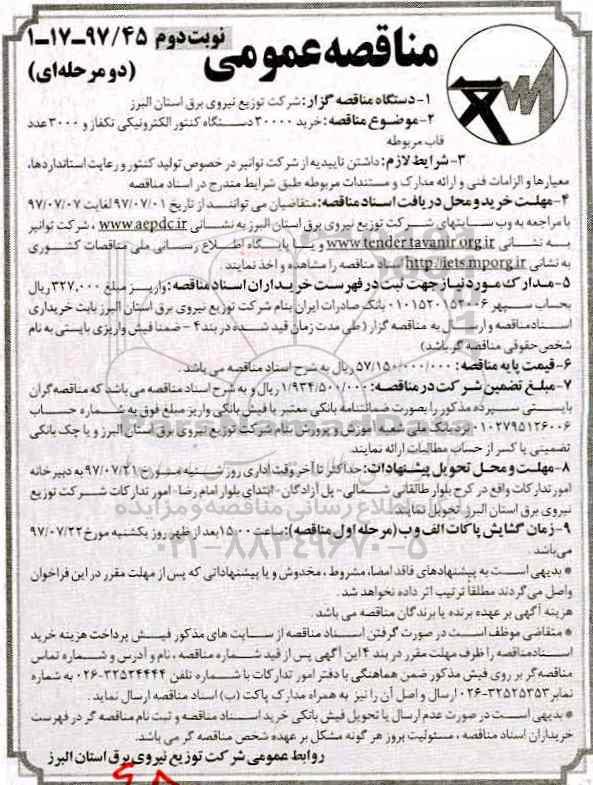 مناقصه عمومی
نوبت دوم ۹۷/۴۵-۱۷-۱
(دو مرحله‌ای)
۱-دستگاه مناقصه گزار: شرکت توزیع نیروی برق استان البرز
۲-موضوع مناقصه: خرید ۳۰۰۰۰ دستگاه کنتور الکترونیکی تکفاز و ۳۰۰۰ عدد
قاب مربوطه
۳-شرایط لازم: داشتن تاییدیه از شرکت توانیر در خصوص تولید کنتور و رعایت استانداردها،
معیارها و الزامات فنی و ارائه مدارک و مستندات مربوطه طبق شرایط مندرج در اسناد مناقصه
۴-مهلت خرید و محل دریافت اسناد مناقصه: متقاضیان می توانند از تاریخ ۹۷/۰۷/۰۱ لغایت ۹۷/۰۷/۰۷
با مراجعه به وب سایتهای شرکت توزیع نیروی برق استان البرز به نشانی www.aepdc.ir ، شرکت توانیر
به نشانی www.tender.tavanir.org.ir و یا پایگاه اطلاع رسانی ملی مناقصات کشوری
به نشانی http://iets.mporg.ir اسناد مناقصه را مشاهده و اخذ نمایند
۵-مدارک مورد نیاز جهت ثبت در فهرست خریداران اسناد مناقصه: واریز مبلغ ۳۲۷,۰۰۰ ریال
بحساب سپهر ۰۱۰۱۵۲۰۱۵۲۰۰۶ بانک صادرات ایران بنام شرکت توزیع نیروی برق استان البرز بابت خریداری
اسناد مناقصه و ارسال به مناقصه گزار (طی مدت زمان قید شده در بند ۴ - ضمنا فیش واریزی بایستی به نام
شخص حقوقی مناقصه گر باشد)
۶-قیمت پایه مناقصه: ۵۷/۱۵۰/۰۰۰/۰۰۰ ریال به شرح اسناد مناقصه می باشد .
۷-مبلغ تضمین شرکت در مناقصه: ۱/۹۳۴/۵۰۰/۰۰۰ ریال و به شرح اسناد مناقصه می باشد که مناقصه گران
بایستی سپرده مذکور را بصورت ضمانتنامه بانکی معتبر یا فیش بانکی واریز مبلغ فوق به شماره حساب
۰۱۰۲۷۹۵۱۲۶۰۰۶ نزد بانک ملی شعبه آموزش و پرورش بنام شرکت توزیع نیروی برق استان البرز و یا چک بانکی
تضمینی یا کسر از حساب مطالبات ارائه نمایند
۸-مهلت و محل تحویل پیشنهادات: حداکثر تا آخر وقت اداری روز شنبه مورخ ۹۷/۰۷/۲۱ به دبیرخانه
امور تدارکات واقع در کرج بلوار طالقانی شمالی- پل آزادگان- ابتدای بلوار امام رضا- امور تدارکات شرکت توزیع
نیروی برق استان البرز تحویل نمایند
۹-زمان گشایش پاکات الف و ب (مرحله اول مناقصه): ساعت ۱۵:۰۰ بعد از ظهر روز یکشنبه مورخ ۹۷/۰۷/۲۲
می باشد .
* بدیهی است به پیشنهادهای فاقد امضا، مشروط ، مخدوش و یا پیشنهاداتی که پس از مهلت مقرر در این فراخوان
واصل می گردند مطلقا ترتیب اثر داده نخواهد شد .
هزینه آگهی بر عهده برنده یا برندگان مناقصه می باشد .
* متقاضی موظف است در صورت گرفتن اسناد مناقصه از سایت های مذکور فیش پرداخت هزینه خرید
اسناد مناقصه را ظرف مهلت مقرر در بند ۴ این آگهی پس از قید شماره مناقصه ، نام و آدرس و شماره تماس
مناقصه گر بر روی فیش مذکور ضمن هماهنگی با دفتر امور تدارکات با شماره تلفن ۳۲۵۳۴۴۴۴-۰۲۶ به شماره
نمابر ۳۲۵۲۵۳۵۳-۰۲۶ ارسال و اصل آن را نیز به همراه مدارک پاکت (ب) اسناد مناقصه ارسال نماید .
* بدیهی است در صورت عدم ارسال یا تحویل فیش بانکی خرید اسناد مناقصه و ثبت نام مناقصه گر در فهرست
خریداران اسناد مناقصه ، مسئولیت بروز هر گونه مشکل بر عهده شخص مناقصه گر می باشد.
روابط عمومی شرکت توزیع نیروی برق استان البرز
پایگاه اطلاع رسانی مناقصه و مزایده
۰۲۱-۸۸۳۴۹۶۷۰-۵